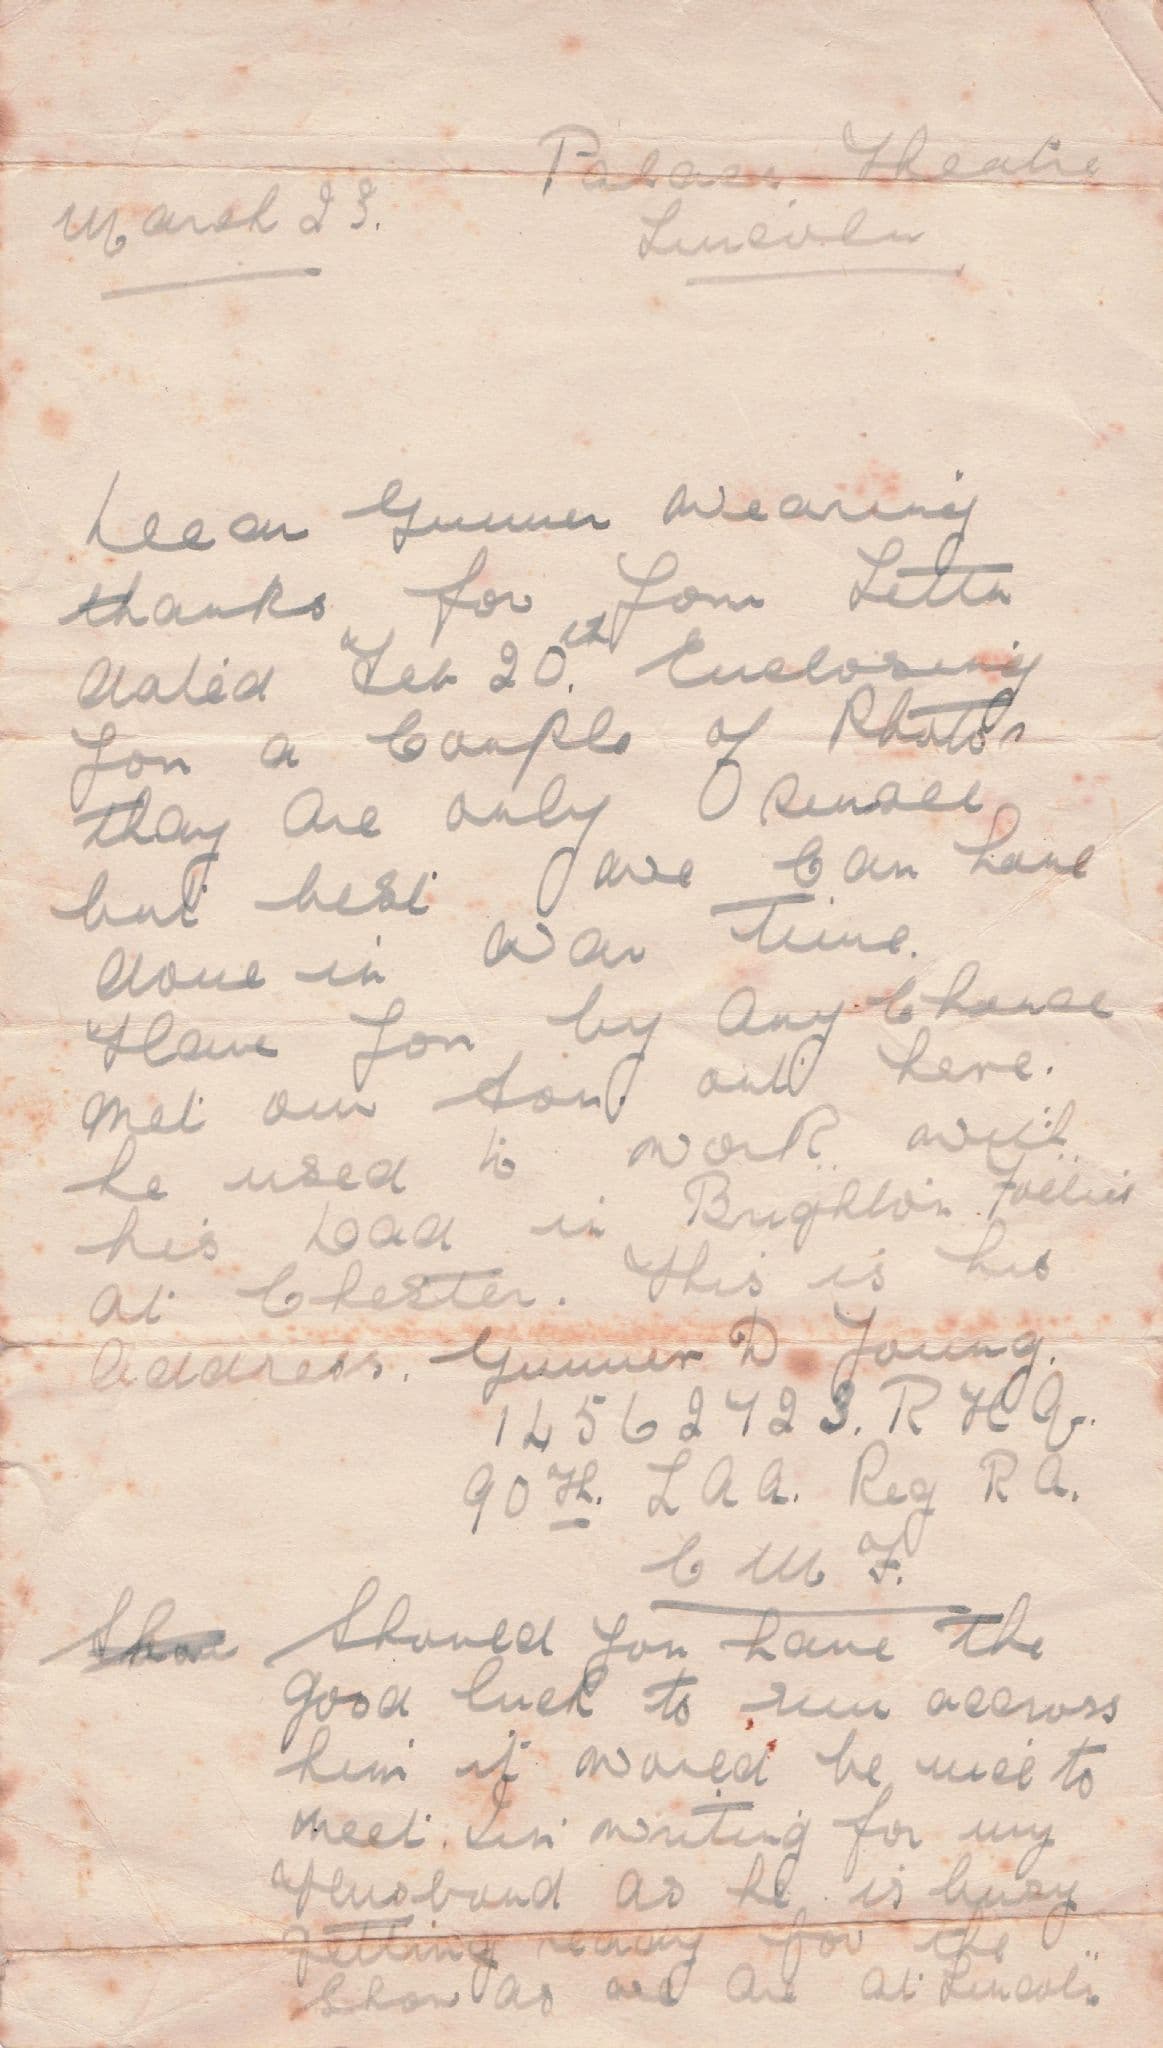 Palace Theatre
March 23.
Lincoln
Dear Gunner Wearing
thanks for your Letter
dated Feb 20th. Enclosing
you a Couple of Photos
thay are only small
but best we Can have
done in war time.
Have you by any Chance
met our Son out here.
he used to work with
his Dad in Brighton Follies
at Chester. This is his
address. Gunner D Young.
14562723. R H Q.
90TH. L A A. Reg R A.
C M F.
Show Should you have the
good luck to run accross
him it would be nice to
meet. Im writing for my
Husband as he is busy
getting ready for the
Show as we are at Lincoln